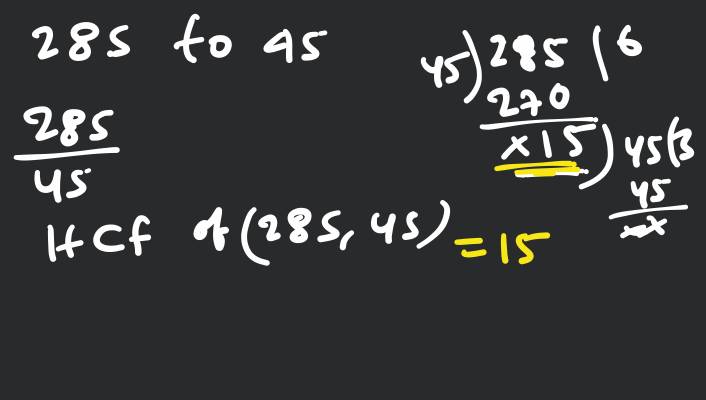 285 to 45
285
45
HCf of (285, 45) = 15
45) 285 (6
270
×15) 45 (3
45
××